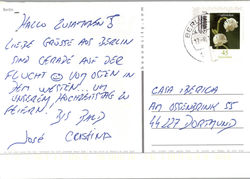 HALLO ZUSAMMEN
LIEBE GRÜSSE AUS BERLIN
SIND GERADE AUF DER
FLUCHT VOM OSTEN IN
DEN WESTEN... UM
UNSEREN HOCHZEITSTAG ZU
FEIERN. BIS BALD
JOSÉ CRISTINA
BERLIN
45
CASA IBERICA
AM OSSENBRINK 55
44227 DORTMUND